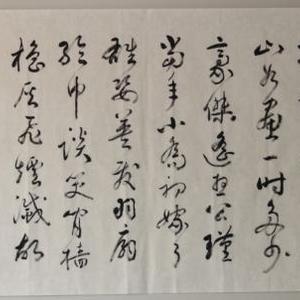 山如畫一時多少
豪傑遙想公瑾
當年小喬初嫁了
雄姿英發羽扇
綸巾談笑間檣
櫓灰飛煙滅故